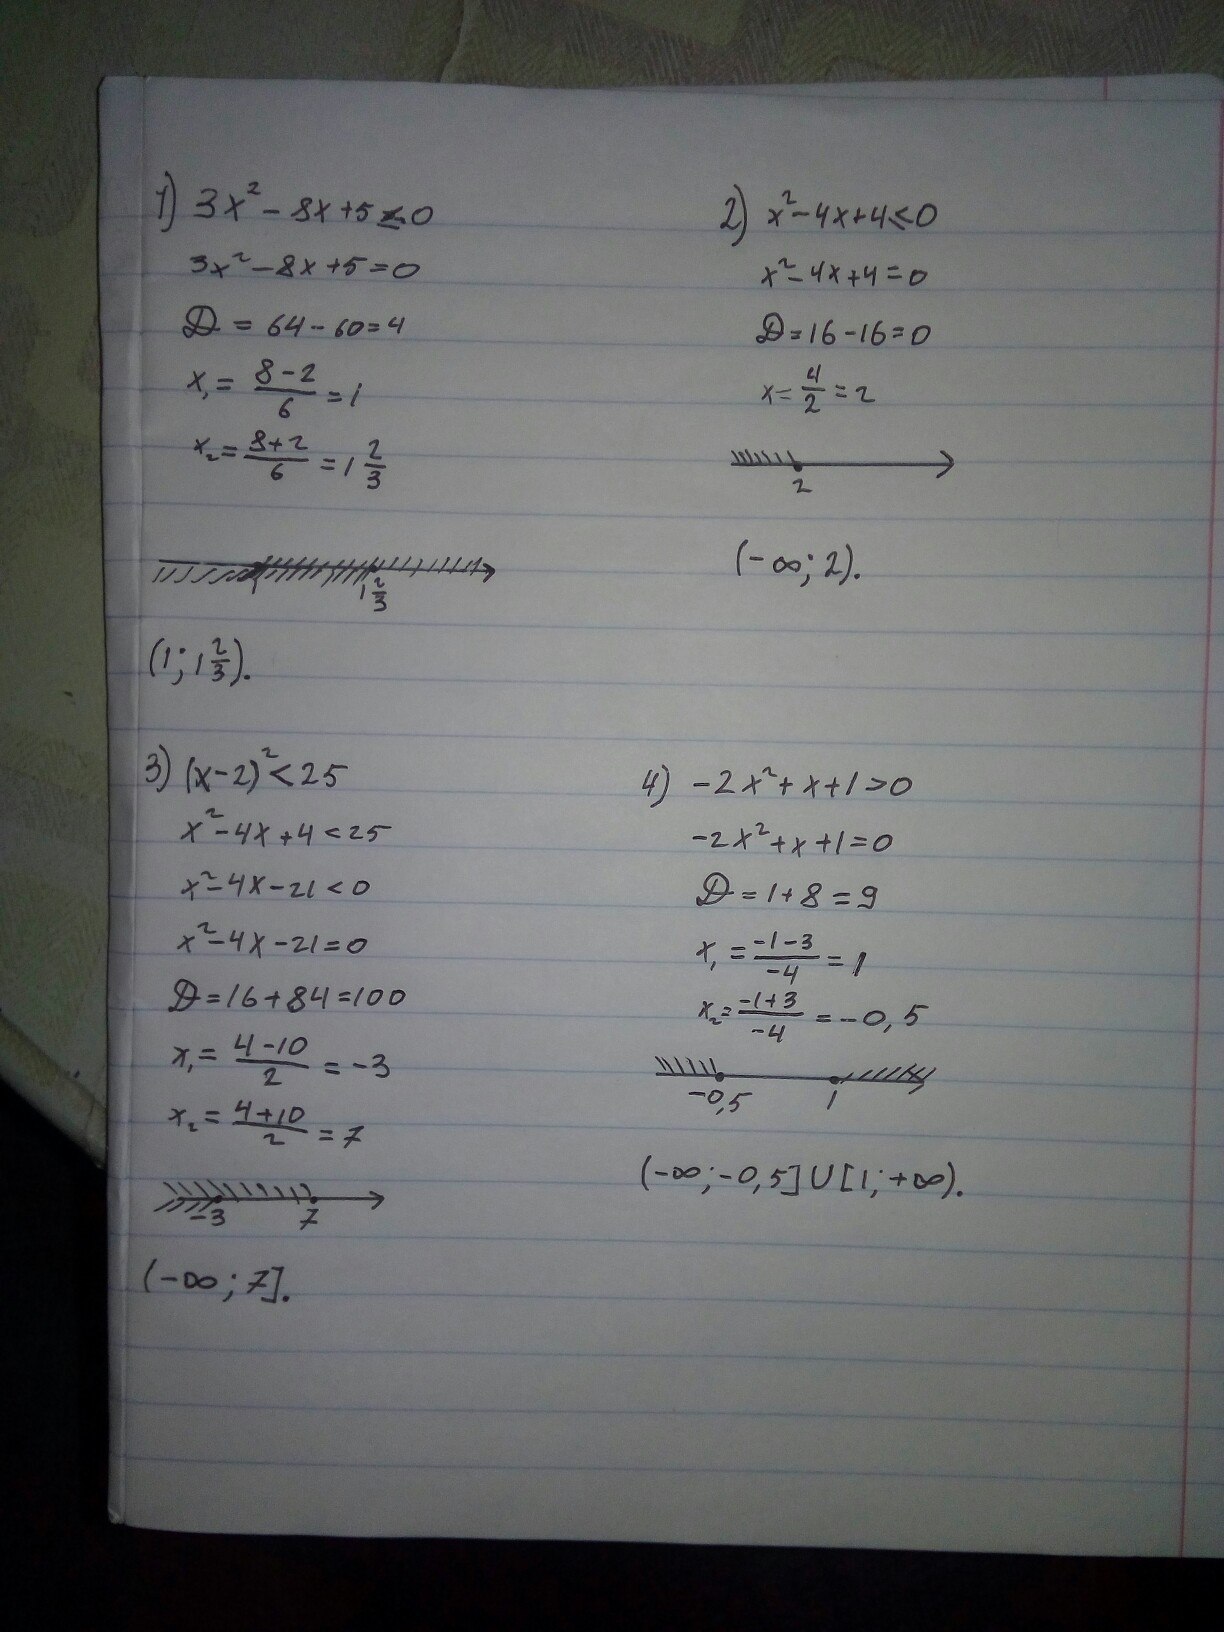 1) 3x² - 8x + 5 ≤ 0
3x² - 8x + 5 = 0
D = 64 - 60 = 4
x₁ = (8 - 2)/6 = 1
x₂ = (8 + 2)/6 = 1 2/3
1 1 2/3
(1; 1 2/3).
2) x² - 4x + 4 ≤ 0
x² - 4x + 4 = 0
D = 16 - 16 = 0
x = 4/2 = 2
2
(-∞; 2).
3) (x - 2)² < 25
x² - 4x + 4 < 25
x² - 4x - 21 < 0
x² - 4x - 21 = 0
D = 16 + 84 = 100
x₁ = (4 - 10)/2 = -3
x₂ = (4 + 10)/2 = 7
-3 7
(-∞; 7].
4) -2x² + x + 1 > 0
-2x² + x + 1 = 0
D = 1 + 8 = 9
x₁ = (-1 - 3)/-4 = 1
x₂ = (-1 + 3)/-4 = -0,5
-0,5 1
(-∞; -0,5] U [1; +∞).